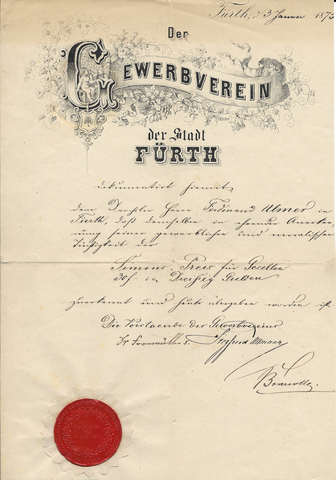 Fürth, d. 3 Januar 187
Der
GEWERBVEREIN
der Stadt
FÜRTH
dokumentirt hiermit
dem Drechsler Herrn Ferdinand Ulmer in
Fürth, daß demselben in ehrender Anerken-
nung seiner gewerblichen und moralischen
Tüchtigkeit der
Simons Preis für Gesellen
30f in Dreißig Gulden
zuerkannt und heute übergeben worden ist
Die Vorstände des Gewerbvereins